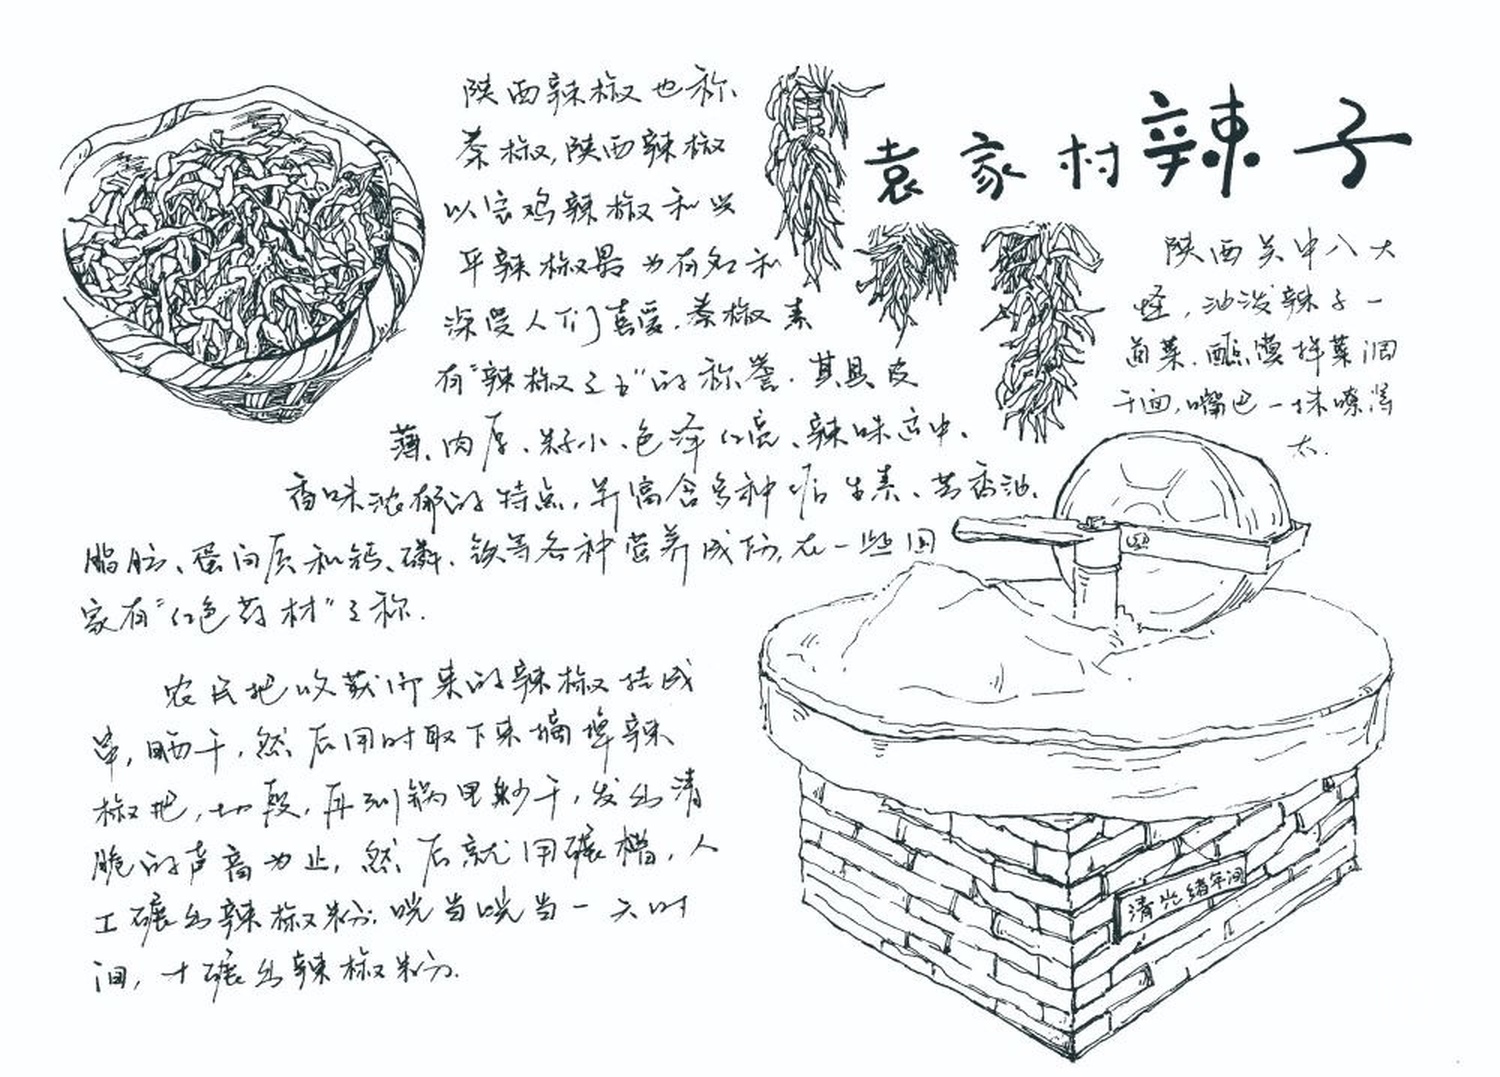 袁家村辣子
陕西辣椒也称
秦椒,陕西辣椒
以宝鸡辣椒和兴
平辣椒最为有名和
深受人们喜爱.秦椒素
有"辣椒之王"的称誉.其具皮
薄、肉厚、籽小、色泽红亮、辣味适中、
香味浓郁的特点,并富含多种维生素、芳香油、
脂肪、蛋白质和钙、磷、铁等各种营养成份,在一些国
家有"红色药材"之称.
农民把收获下来的辣椒结成
串,晒干,然后用时取下来摘掉辣
椒把,切段,再到锅里炒干,发出清
脆的声音为止,然后就用碾槽,人
工碾出辣椒粉.咣当咣当一天时
间,才碾出辣椒粉.
陕西关中八大
怪,油泼辣子一
道菜.蘸馍拌菜调
干面,嘴巴一抹嘹滴
太.
清光绪年间